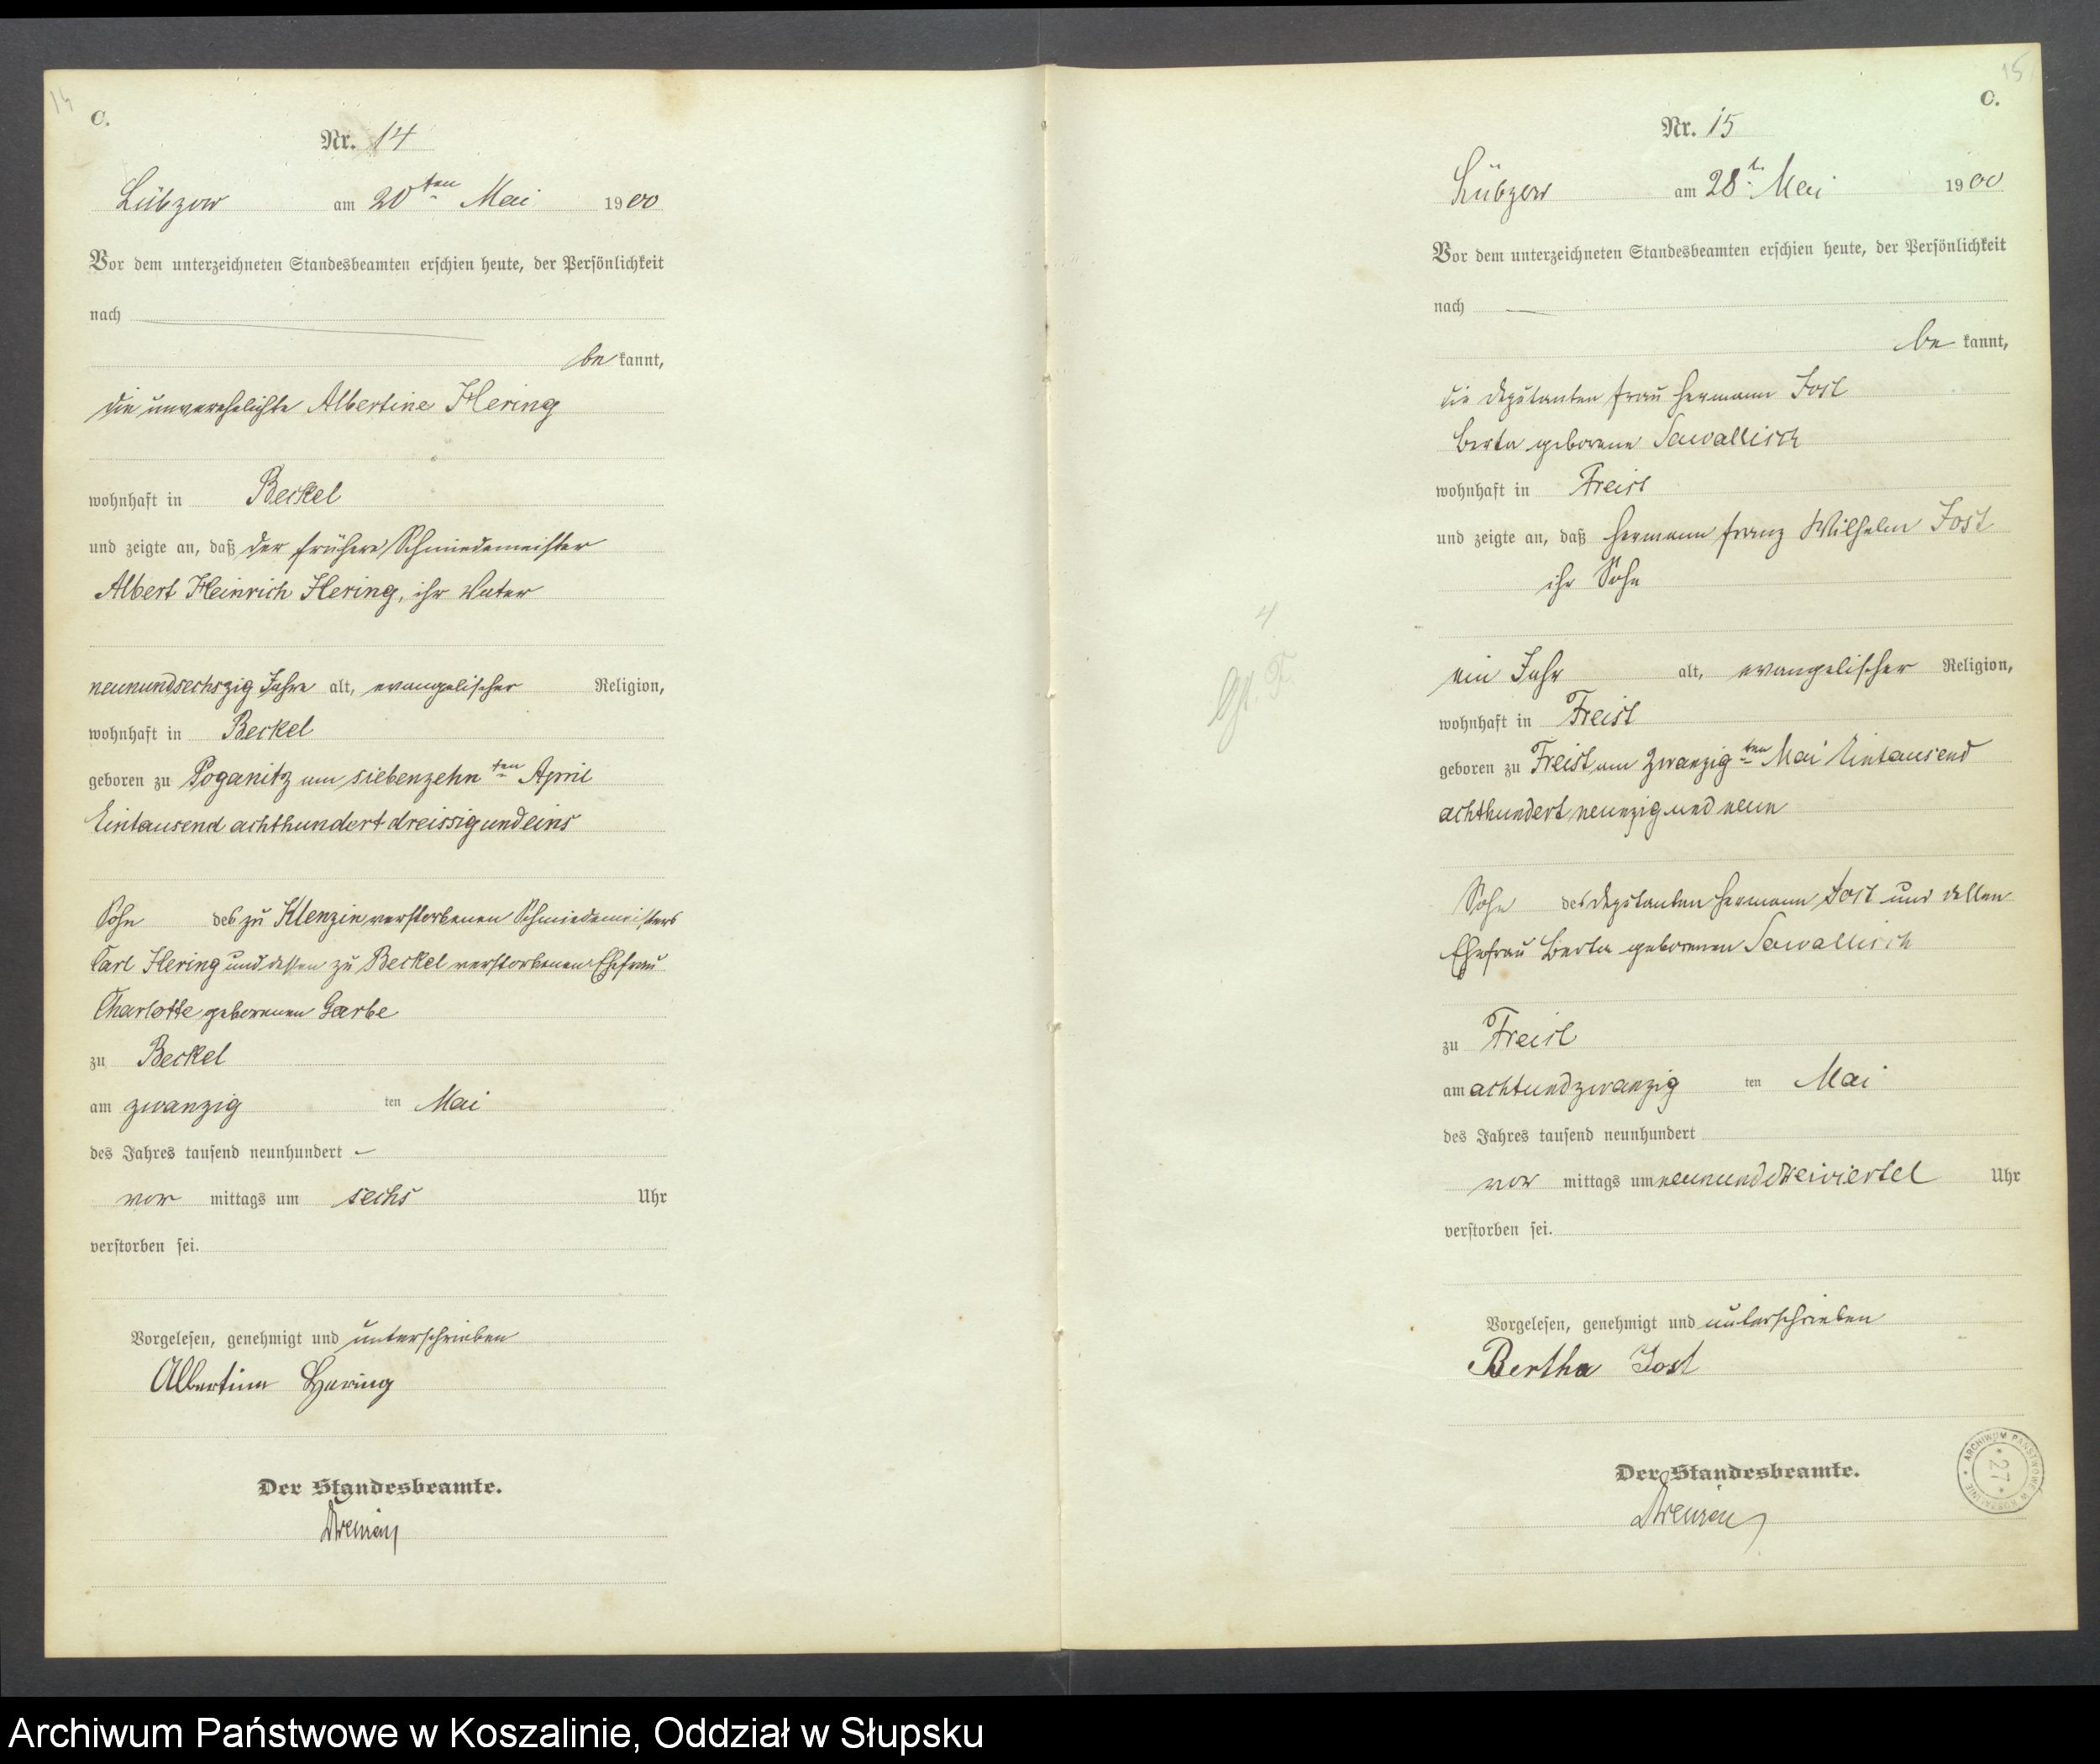 14
C.
Nr. 14
Lübzow am 20ten Mai 1900
Vor dem unterzeichneten Standesbeamten erschien heute, der Persönlichkeit
nach
be kannt,
die unverehelichte Albertine Hering
wohnhaft in Beckel
und zeigte an, daß der frühere Schmiedemeister
Albert Heinrich Hering, ihr Vater
neunundsechszig Jahre alt, evangelischer Religion,
wohnhaft in Beckel
geboren zu Poganitz am siebenzehnten April
Eintausend achthundert dreissigundeins
Sohn des zu Klenzin verstorbenen Schmiedemeisters
Carl Hering und dessen zu Beckel verstorbenen Ehefrau
Charlotte geborenen Garbe
zu Beckel
am zwanzig ten Mai
des Jahres tausend neunhundert
vor mittags um sechs Uhr
verstorben sei.
Vorgelesen, genehmigt und unterschrieben
Albertine Hering
Der Standesbeamte.
15
C.
Nr. 15
Lübzow am 28t. Mai 1900
Vor dem unterzeichneten Standesbeamten erschien heute, der Persönlichkeit
nach
be kannt,
die Deputanten frau Hermann Jost
Berta geborene Sawallisch
wohnhaft in Freist
und zeigte an, daß Hermann Franz Wilhelm Jost
ihr Sohn
ein Jahr alt, evangelischer Religion,
wohnhaft in Freist
geboren zu Freist am zwanzigten Mai Eintausend
achthundert neunzig und neun
Sohn des Deputanten Hermann Jost und dessen
Ehefrau Berta geborenen Sawallisch
zu Freist
am achtundzwanzig ten Mai
des Jahres tausend neunhundert
vor mittags um neununddreiviertel Uhr
verstorben sei.
Vorgelesen, genehmigt und unterschrieben
Bertha Jost
Der Standesbeamte.
ARCHIWUM PAŃSTWOWE W KOSZALINIE
27
Archiwum Państwowe w Koszalinie, Oddział w Słupsku